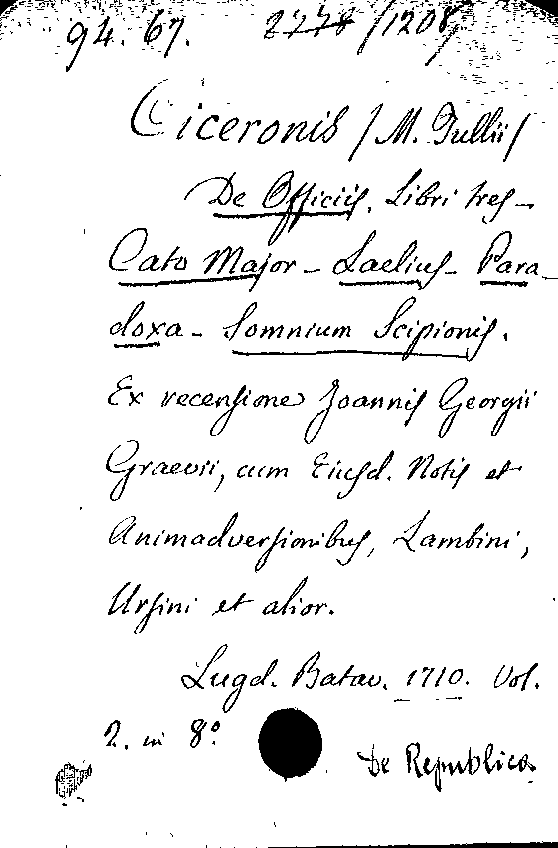 94. 67. 2778 /1208/
Ciceronis /M. Tullii/
De Officiis. Libri tres –
Cato Major – Laelius – Para-
doxa – Somnium Scipionis.
Ex recensione Joannis Georgii
Graevii, cum Eiusd. Notis et
Animadversionibus, Lambini,
Ursini et alior.
Lugd. Batav. 1710. Vol.
2. in 8º
De Republica